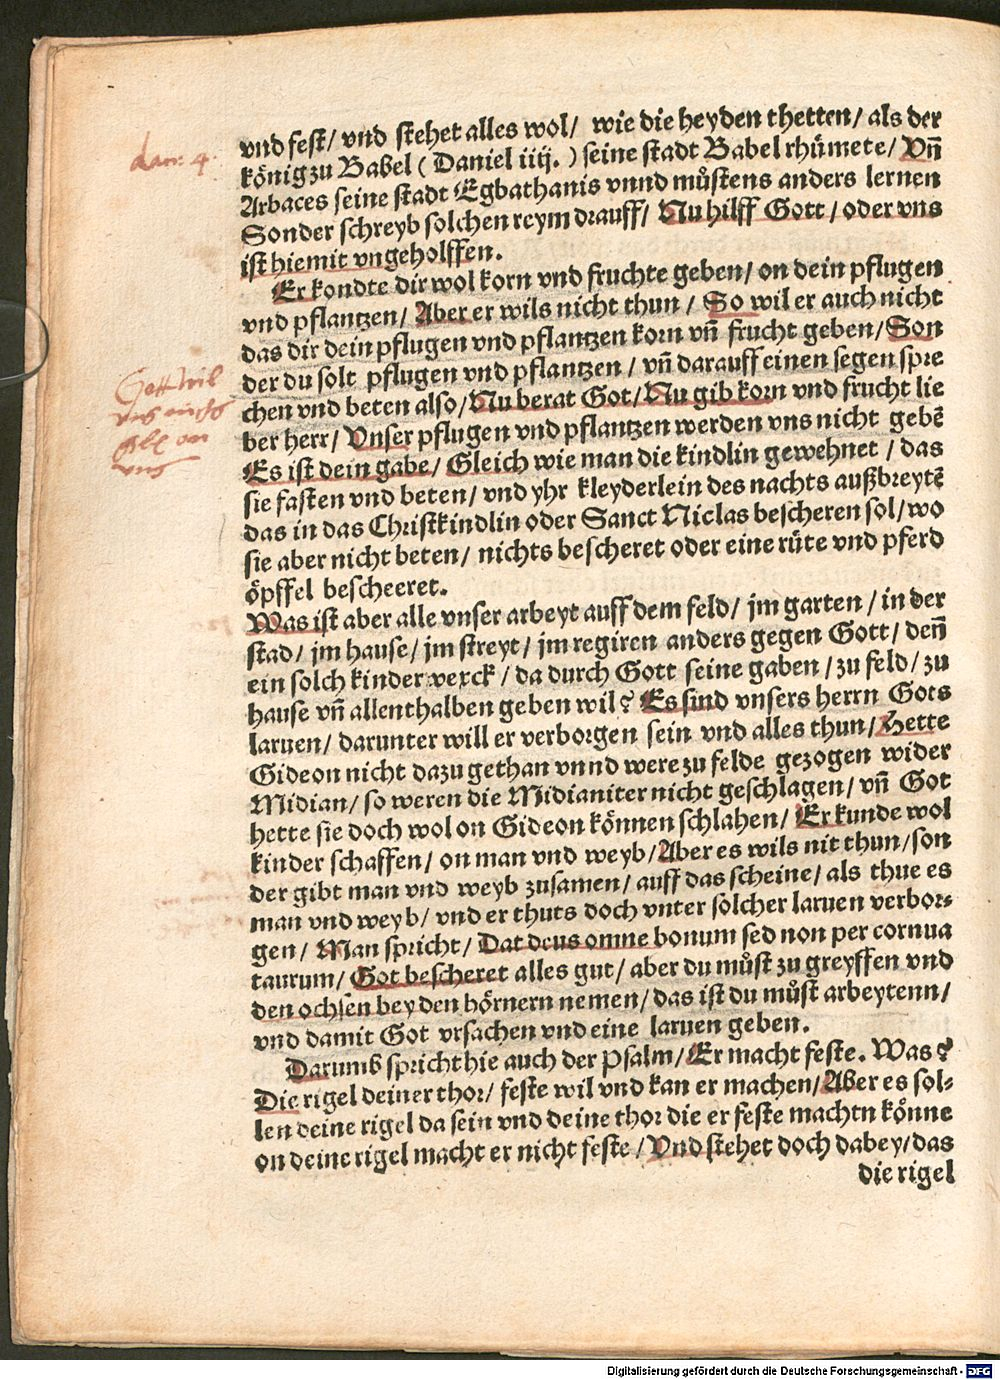 vnd fest/ vnd stehet alles wol/ wie die heyden thetten/ als der
dan: 4.
könig zu Babel ( Daniel iiij. ) seine stadt Babel rhümete/ Vñ
Arbaces seine stadt Egbathanis vnnd můstens anders lernen
Sonder schreyb solchen reym drauff/ Nu hilff Gott/ oder vns
ist hiemit vngeholffen.
Er kondte dir wol korn vnd fruchte geben/ on dein pflugen
vnd pflantzen/ Aber er wils nicht thun/ So wil er auch nicht
das dir dein pflugen vnd pflantzen korn vñ frucht geben/ Son
der du solt pflugen vnd pflantzen/ vñ darauff einen segen spre
chen vnd beten also/ Nu berat Got/ Nu gib korn vnd frucht lie
ber herr/ Vnser pflugen vnd pflantzen werden vns nicht gebẽ
Gott wil
vns nichts
on
vns
Es ist dein gabe/ Gleich wie man die kindlin gewehnet/ das
sie fasten vnd beten/ vnd yhr kleyderlein des nachts außbreytẽ
das in das Christkindlin oder Sanct Niclas bescheren sol/ wo
sie aber nicht beten/ nichts bescheret oder eine rüte vnd pferd
öpffel bescheeret.
Was ist aber alle vnser arbeyt auff dem feld/ jm garten/ in der
stad/ jm hause/ jm streyt/ jm regiren anders gegen Gott/ deñ
ein solch kinder werck/ da durch Gott seine gaben/ zu feld/ zu
hause vñ allenthalben geben wil? Es sind vnsers herrn Gots
laruen/ darunter will er verborgen sein vnd alles thun/ Hette
Gideon nicht dazu gethan vnnd were zu felde gezogen wider
Midian/ so weren die Midianiter nicht geschlagen/ vñ Got
hette sie doch wol on Gideon können schlahen/ Er kunde wol
kinder schaffen/ on man vnd weyb/ Aber es wils nit thun/ son
der gibt man vnd weyb zusamen/ auff das scheine/ als thue es
man vnd weyb/ vnd er thuts doch vnter solcher laruen verbor⸗
gen/ Man spricht/ Dat deus omne bonum sed non per cornua
taurum/ Got bescheret alles gut/ aber du můst zu greyffen vnd
den ochsen bey den hörnern nemen/ das ist du můst arbeytenn/
vnd damit Got vrsachen vnd eine laruen geben.
Darumb spricht hie auch der Psalm/ Er macht feste. Was?
Die rigel deiner thor/ feste wil vnd kan er machen/ Aber es sol⸗
len deine rigel da sein vnd deine thor die er feste machtn könne
on deine rigel macht er nicht feste/ Vnd stehet doch dabey/ das
die rigel
Digitalisierung gefördert durch die Deutsche Forschungsgemeinschaft - DFG